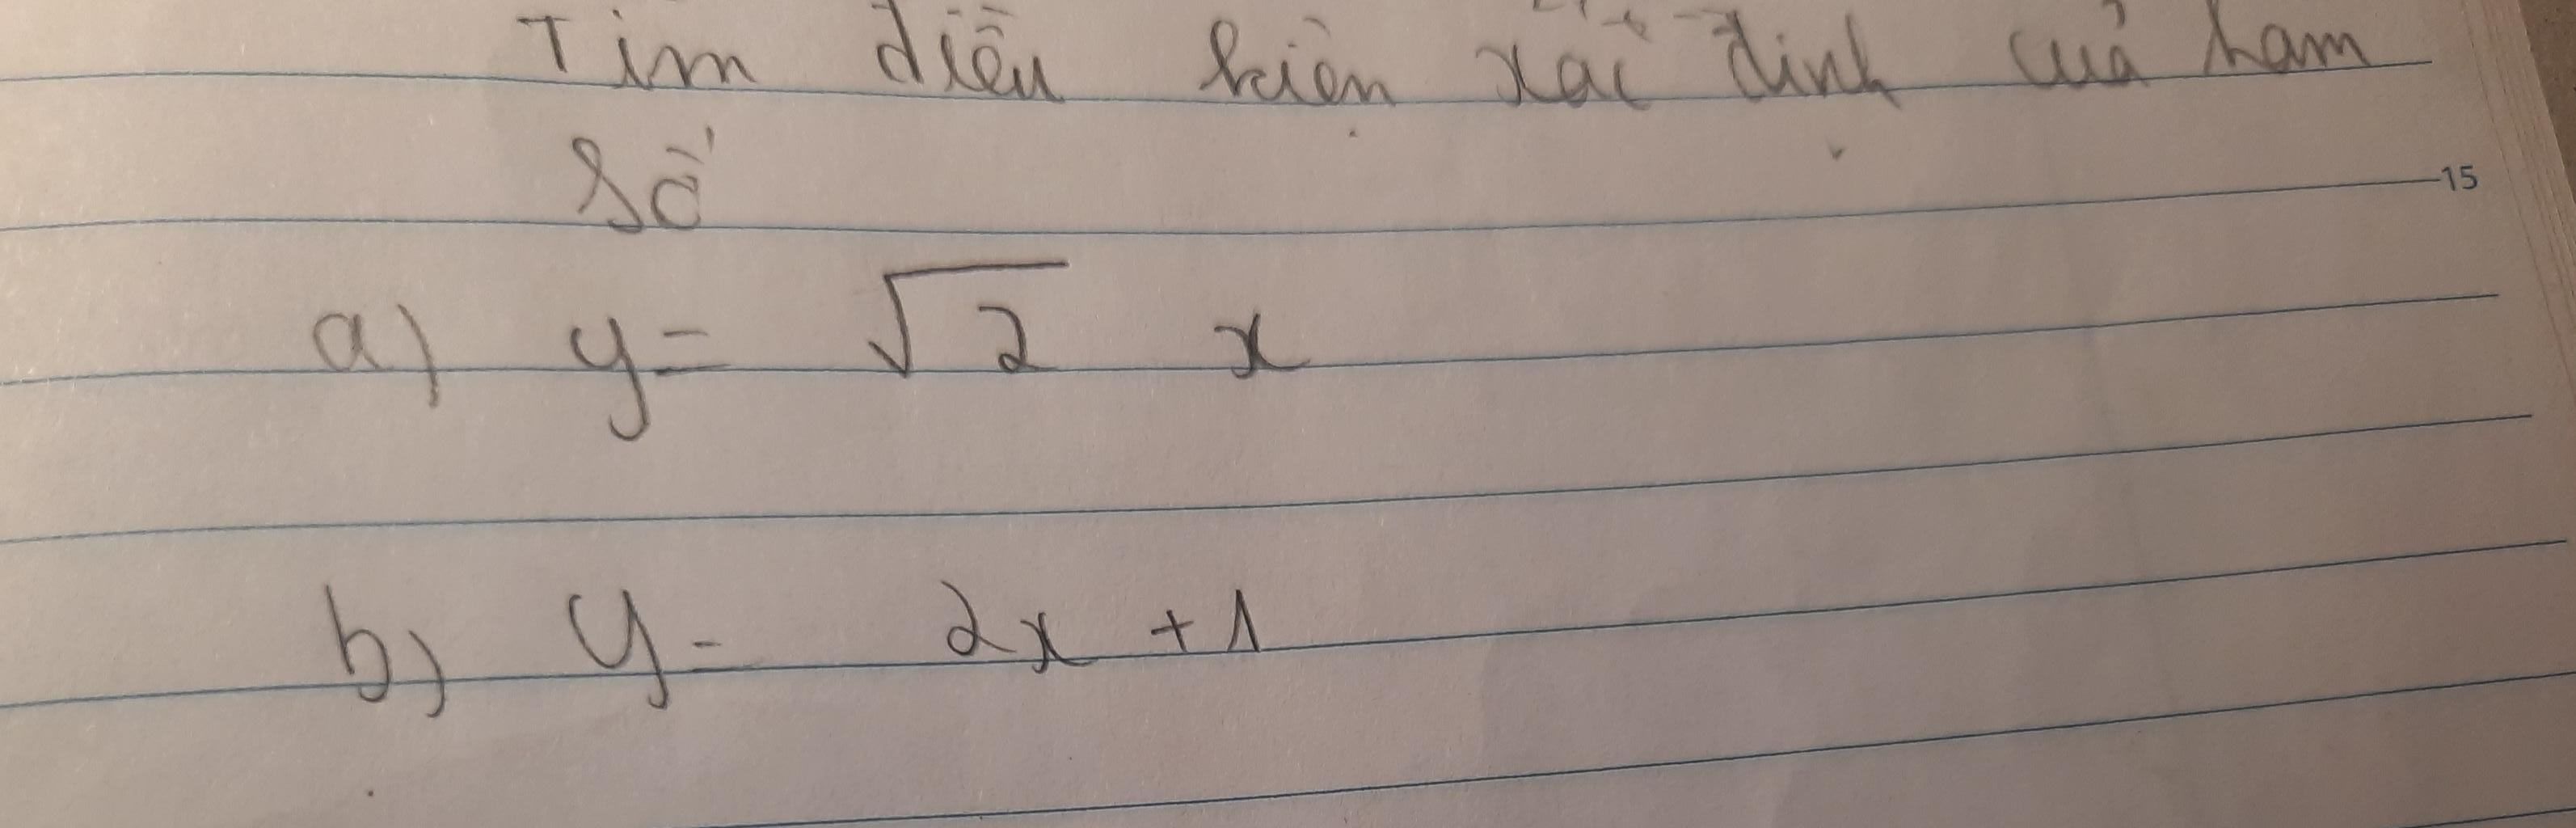 Tìm điều kiện xác định của hàm
số
15
a) y = √2 x
b) y = 2x + 1